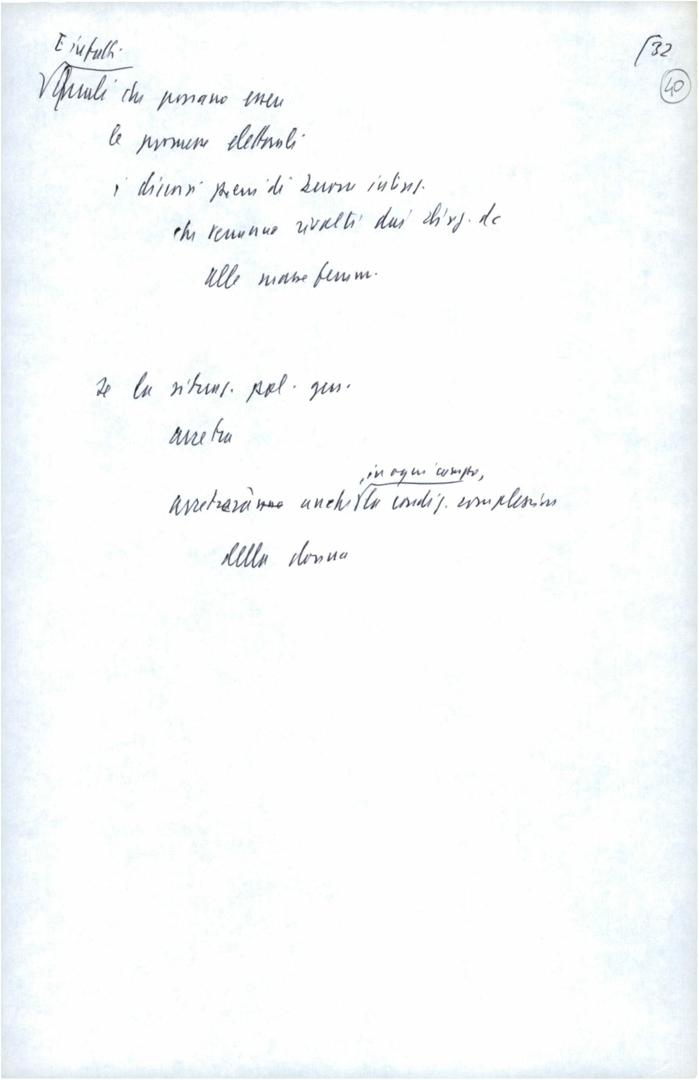 E infatti.
32
40
Quali che possano essere
le promesse elettorali
i discorsi pieni di buone intenz.
che verranno rivolti dai dirig. dc
alle masse femm.
se la situaz. pol. gen.
arretra
in ogni campo,
arretrerà anche la condiz. complessiva
della donna